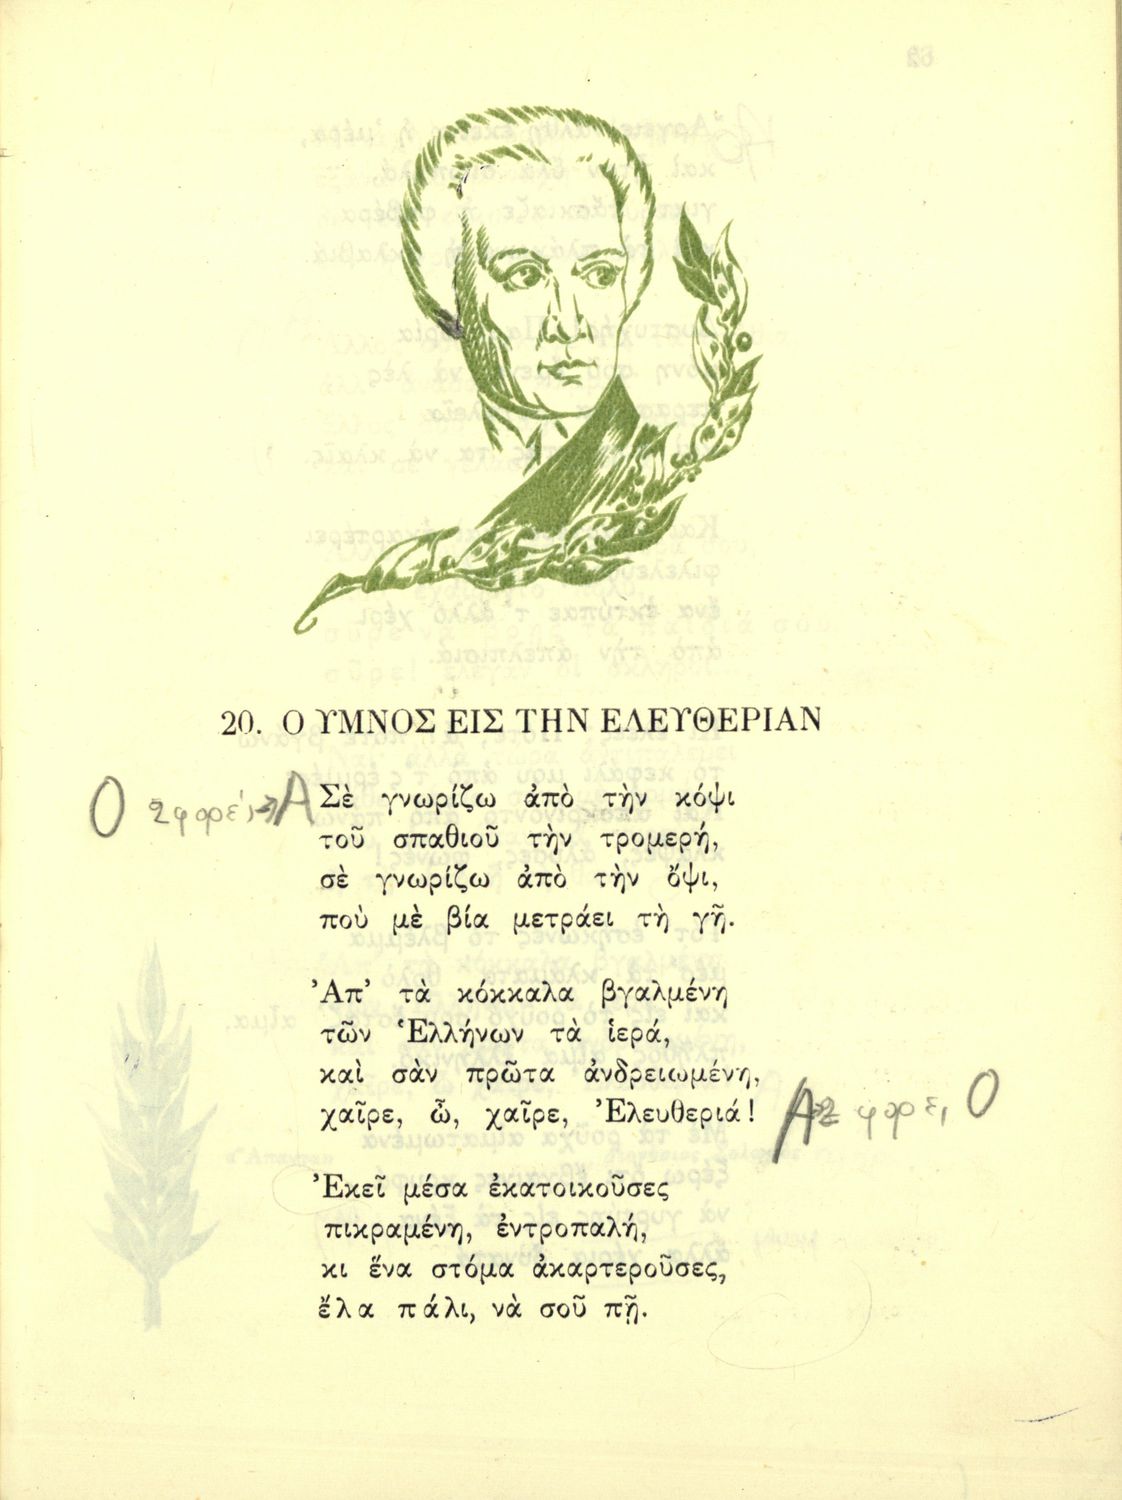 20. Ο ΥΜΝΟΣ ΕΙΣ ΤΗΝ ΕΛΕΥΘΕΡΙΑΝ
Σὲ γνωρίζω ἀπὸ τὴν κόψι
τοῦ σπαθιοῦ τὴν τρομερή,
σὲ γνωρίζω ἀπὸ τὴν ὄψι,
ποὺ μὲ βία μετράει τὴ γῆ.
Ἀπ’ τὰ κόκκαλα βγαλμένη
τῶν Ἑλλήνων τὰ ἱερά,
καὶ σὰν πρῶτα ἀνδρειωμένη,
χαῖρε, ὦ, χαῖρε, Ἐλευθεριά!
Ἐκεῖ μέσα ἐκατοικοῦσες
πικραμένη, ἐντροπαλή,
κι ἕνα στόμα ἀκαρτεροῦσες,
ἔλα πάλι, νὰ σοῦ πῇ.